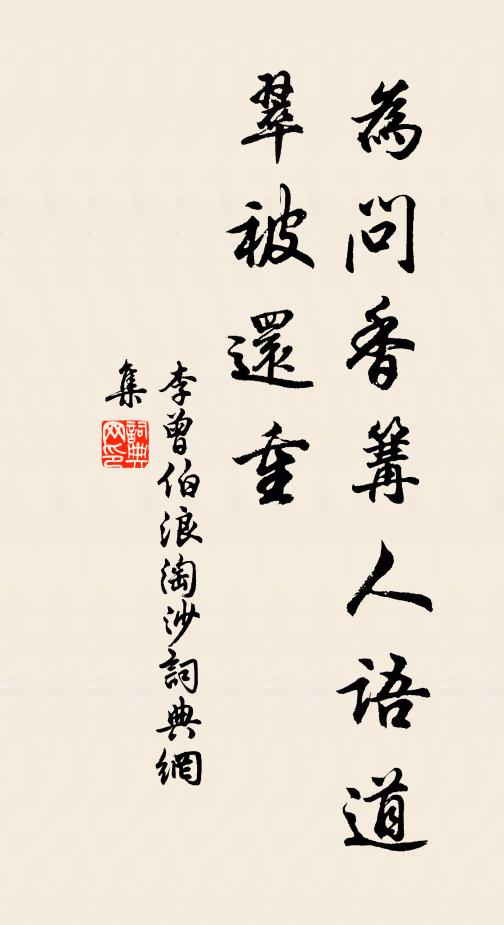 為問香篝人語道
翠被還重
李曾伯浪淘沙詞典網
集
詞典
网印